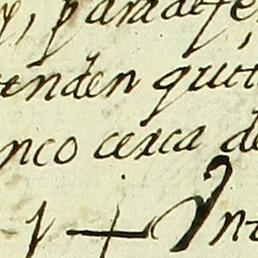 , para defe
tenden quit
nco cerca de
Ynt